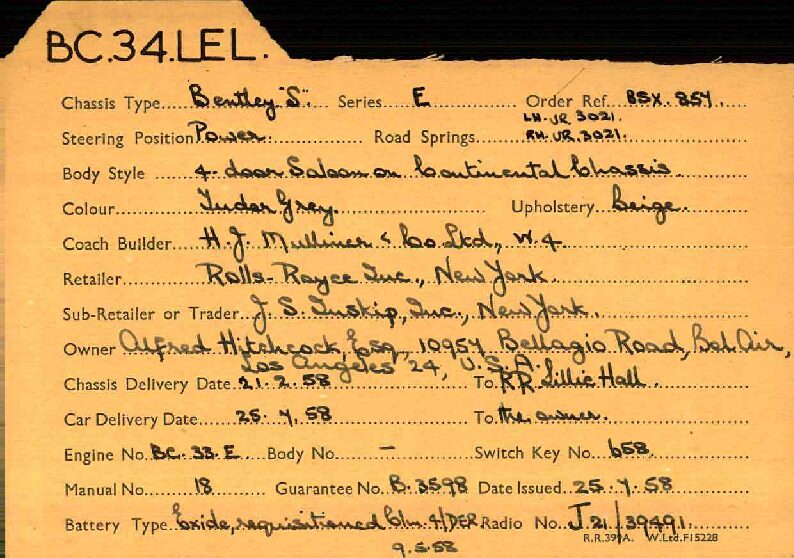 BC.34.LEL.
Chassis Type Bentley "S". Series E Order Ref. BSX. 854.
LH. UR 3021.
Steering Position Power. Road Springs RH. UR 3021.
Body Style 4-door Saloon on Continental Chassis
Colour Tudor Grey. Upholstery Beige.
Coach Builder H.J. Mulliner & Co Ltd., W.4
Retailer Rolls-Royce Inc., New York.
Sub-Retailer or Trader J. S. Inskip, Inc., New York.
Owner Alfred Hitchcock, Esq., 10957 Bellagio Road, Bel Air,
Los Angeles 24, U.S.A.
Chassis Delivery Date 21. 2. 58 To RR Lillie Hall.
Car Delivery Date 25. 4. 58 To the owner.
Engine No. BC. 33. E Body No. – Switch Key No. 658.
Manual No. 18 Guarantee No. B. 3598 Date Issued 25. 4. 58
Battery Type Exide, requisitioned Radio No. J.21/39491.
9. 5. 58 R.R.399A. W.Ltd.F15228